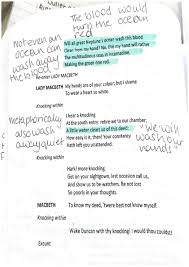 Not even an
ocean can
wash away
the blood.
The blood would
turn the ocean
red
Will all great Neptune's ocean wash this blood
Clean from my hand? No, this my hand will rather
The multitudinous seas in incarnadine,
Making the green one red.
Enter LADY MACBETH
LADY MACBETH My hands are of your colour; but I shame
To wear a heart so white.
Knocking within
I hear a knocking
At the south entry: retire we to our chamber;
A little water clears us of this deed:
How easy is it, then! Your constancy
Hath left you unattended.
Metaphorically
also wash
away guilt
"We will
wash our
hands"
Knocking within
Hark! more knocking.
Get on your nightgown, lest occasion call us,
And show us to be watchers. Be not lost
So poorly in your thoughts.
MACBETH To know my deed, 'twere best not know myself.
Knocking within
Wake Duncan with thy knocking! I would thou couldst!
Exeunt